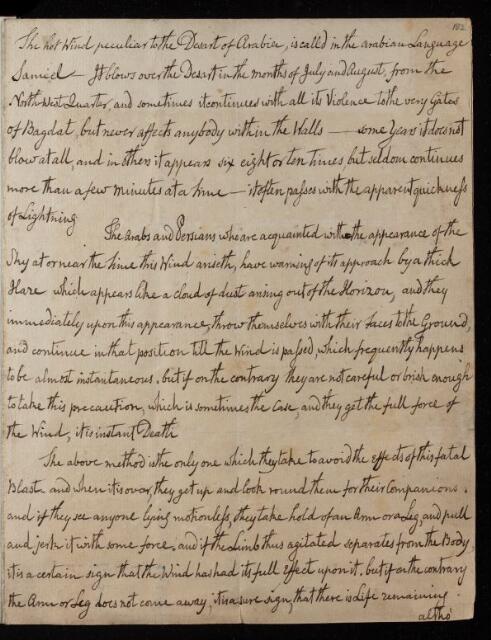 102
The hot Wind peculiar to the Desart of Arabia, is called in the arabian Language
Samiel — It blows over the Desart in the months of July and August, from the
North West Quarter, and sometimes it continues with all its Violence to the very Gates
of Bagdat, but never affects anybody within the Walls — some Years it does not
blow at all, and in others it appears six eight or ten times but seldom continues
more than a few minutes at a time — it often passes with the apparent quickness
of Lightning
The Arabs and Persians who are acquainted with the appearance of the
Sky at or near the time this Wind ariseth, have warning of its approach by a thick
Haze which appears like a cloud of dust arising out of the Horizon, and they
immediately upon this appearance, throw themselves with their faces to the Ground,
and continue in that position till the Wind is passed, which frequently happens
to be almost instantaneous. but if on the contrary they are not careful or brisk enough
to take this precaution, which is sometimes the Case, and they get the full force of
the Wind, it is instant Death
The above method is the only one which they take to avoid the Effects of this fatal
Blast and when it is over, they get up and look round them for their Companions.
and if they see anyone lying motionless, they take hold of an Arm or a Leg, and pull
and jerk it with some force, and if the Limb thus agitated separates from the Body
it is a certain sign that the Wind has had its full Effect upon it. but if on the contrary
the Arm or Leg does not come away, it is a sure sign, that there is Life remaining
altho'